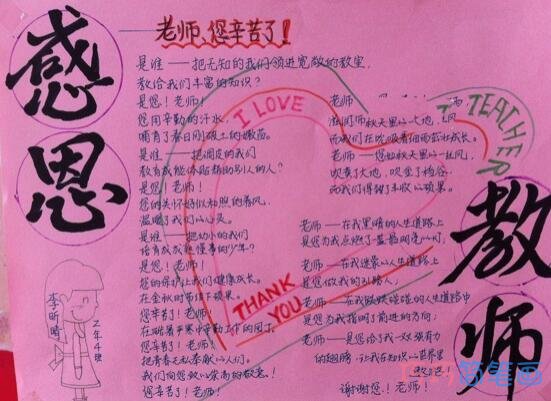 感恩
教师
——老师、您辛苦了!
是谁——把无知的我们领进宽敞的教室,
教给我们丰富的知识?
是您!老师!
您用辛勤的汗水,
哺育了春日刚破土的嫩苗。
是谁——把调皮的我们
教育成能体贴帮助别人的人?
是您!老师!
您的关怀好似和煦的春风,
温暖了我们的心灵。
是谁——把幼小的我们
培育成成熟懂事的少年?
是您!老师!
您的保护让我们健康成长。
在金秋的节硕果。
您辛苦了!老师!
您辛苦了!老师!
把青春无私奉献的人们。
我们向您致以崇高的敬意!
您辛苦了!老师!
I LOVE
TEACHER
THANK
YOU
老师
而我们在吹吸着细雨茁壮成长。
老师——您如秋天里的一丝风,
而我们得到了丰收的硕果。
老师——在我黑暗的人生道路上
是您为我点燃了一盏最明亮的灯;
老师——在我迷蒙的人生道路上
是您做我的引路人;
的人生道路中
是您为我指明了前进的方向;
老师——是您给了我一双强有力
的翅膀,让我在知识的世界里
谢谢您!老师!
李昕晴
简笔画